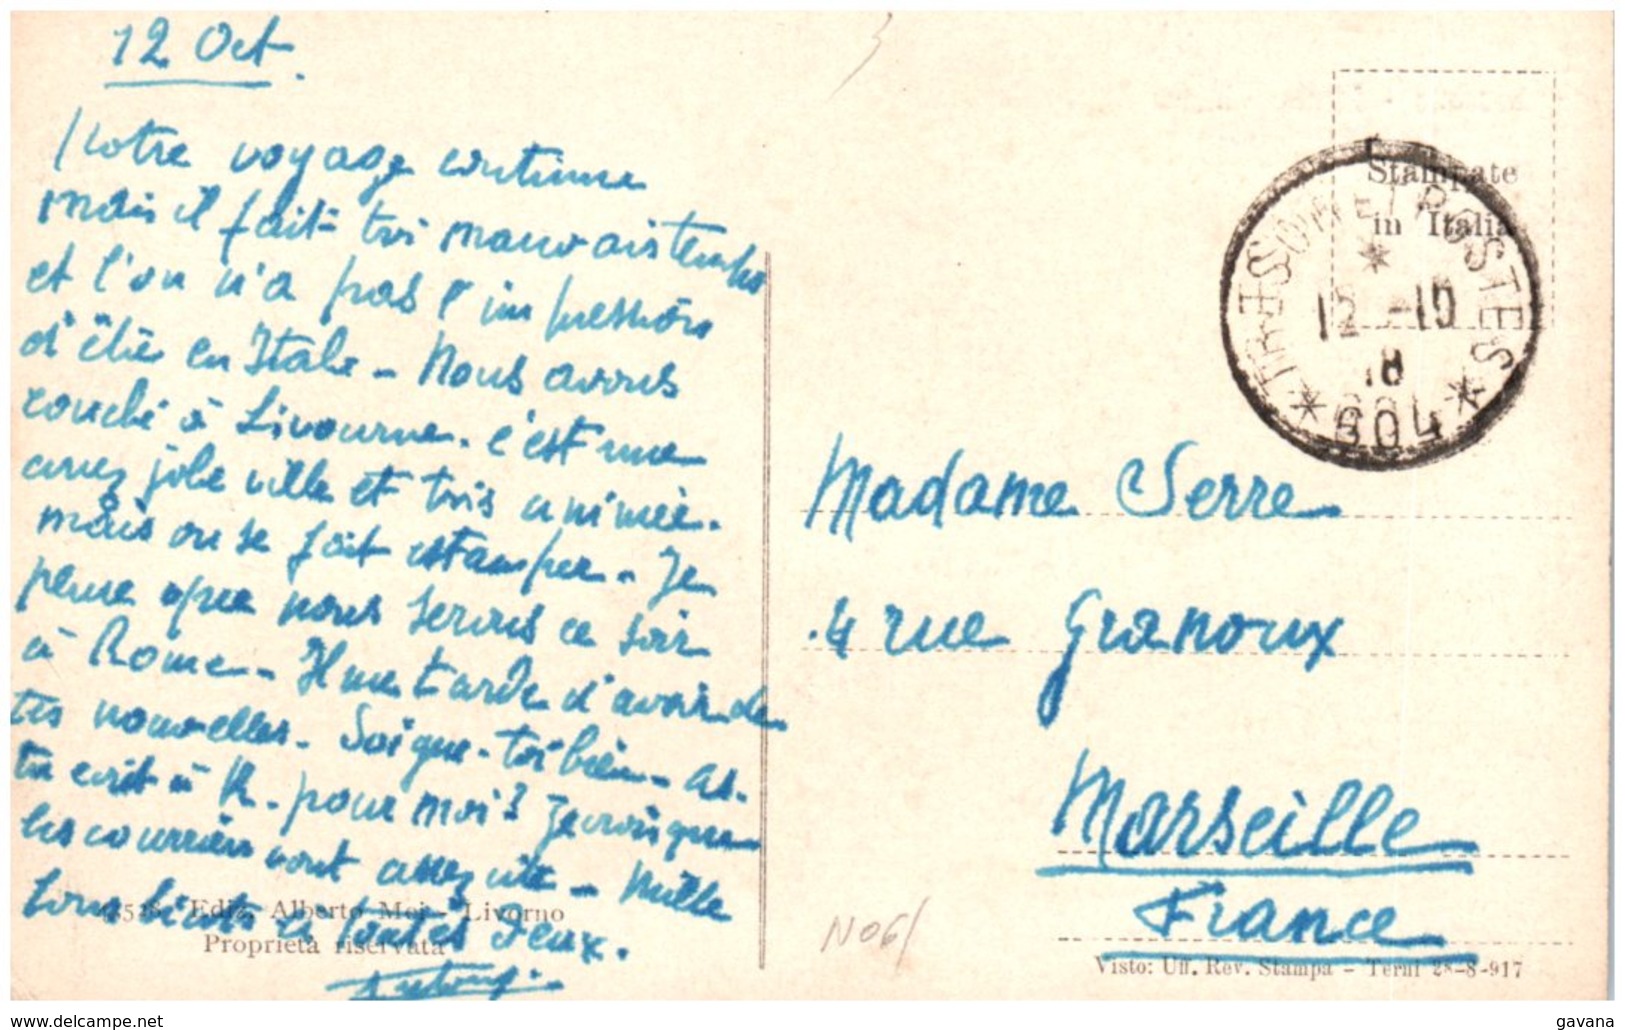 12 Oct.
Notre voyage continue
mais il fait très mauvais temps
et l'on n'a pas l'impression
d'être en Italie - Nous avons
couché à Livourne. c'est une
assez jolie ville et très animée.
mais on se fait estamper - Je
pense que nous serons ce soir
à Rome - Il me tarde d'avoir de
tes nouvelles - Soigne-toi bien - as-
tu écrit à R. pour moi? Je crois que
les courriers vont assez vite - Mille
bonnes à toutes deux.
Ediz. Alberto Mei - Livorno
Proprietà riservata
Stampate
in Italia
TRESOR ET POSTES
12 -10
18
* 604 *
Madame Serre
4 rue Granoux
Marseille
France
N06/
Visto: Uff. Rev. Stampa - Terni 28-8-917
www.delcampe.net
gavana